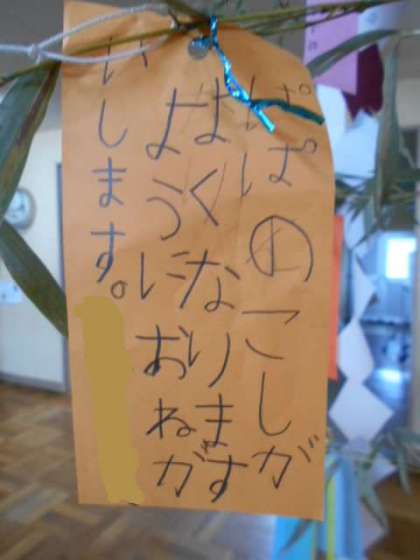 ぱぱのこしが
よくなります
ようにおねが
いします。